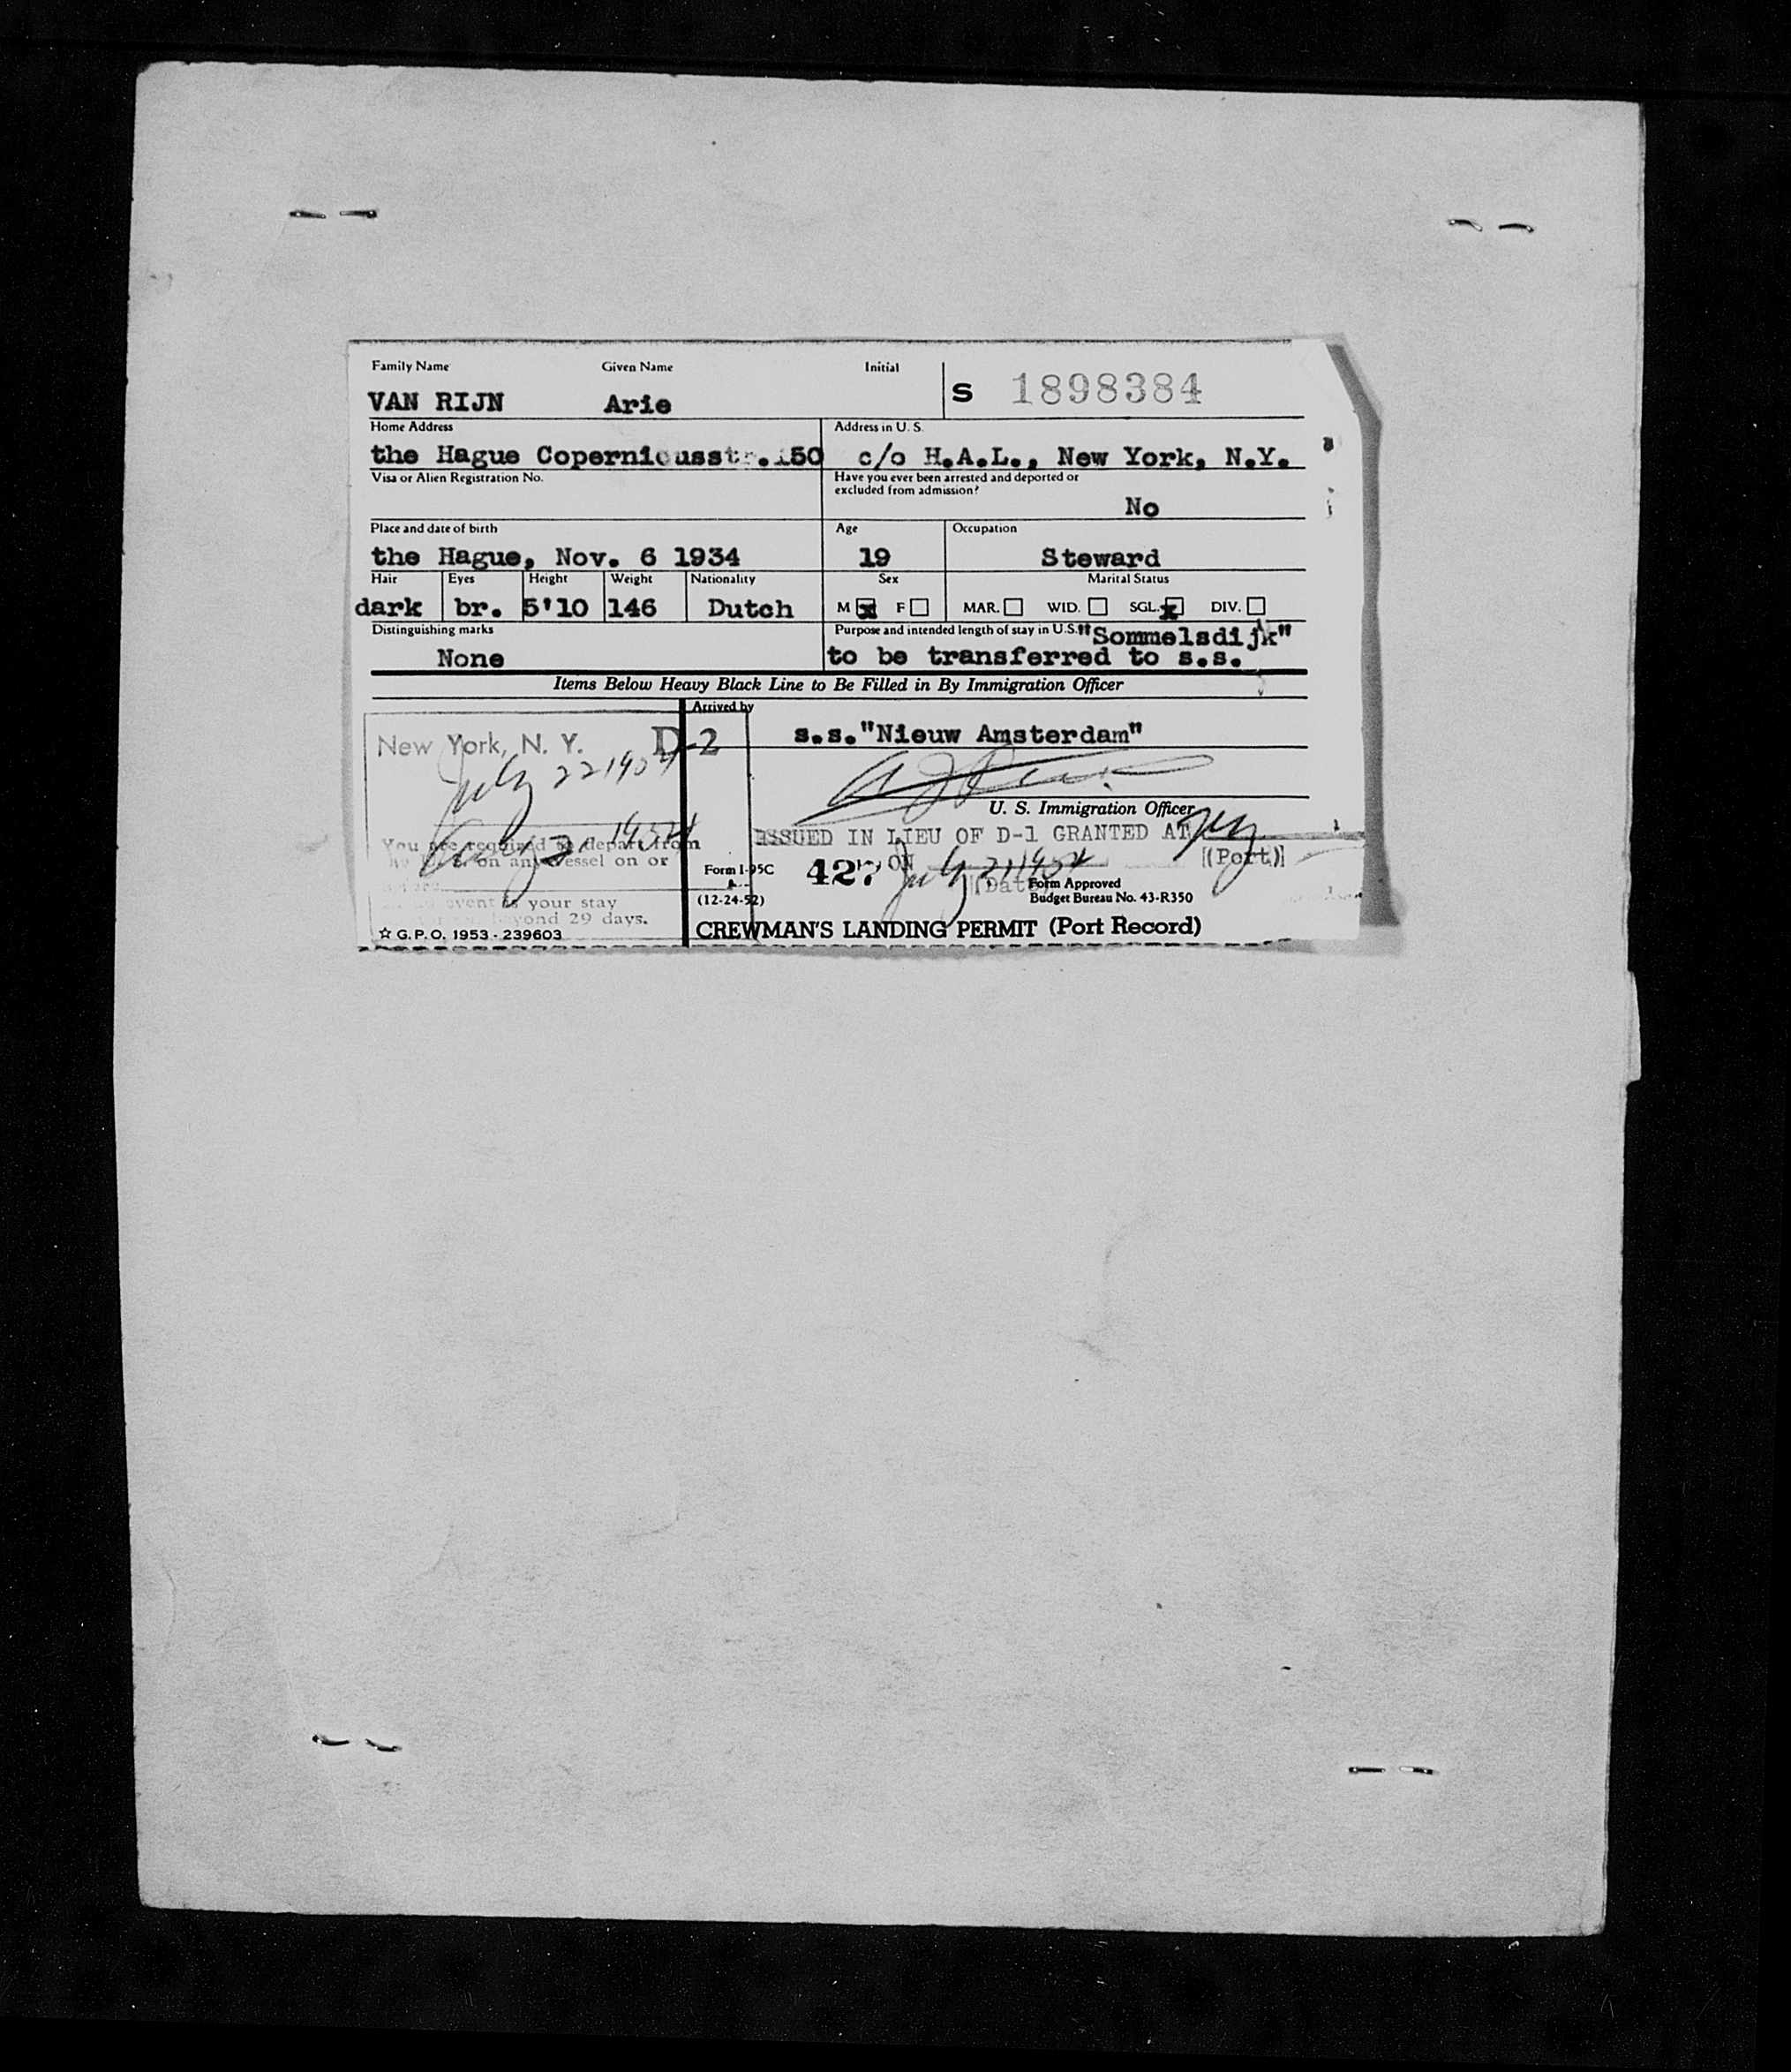 Family Name Given Name Initial
VAN RIJN Arie S 1898384
Home Address Address in U. S.
the Hague Copernicusstr.150 c/o H.A.L., New York, N.Y.
Visa or Alien Registration No. Have you ever been arrested and deported or
excluded from admission?
No
Place and date of birth Age Occupation
the Hague, Nov. 6 1934 19 Steward
Hair Eyes Height Weight Nationality Sex Marital Status
dark br. 5'10 146 Dutch M x F MAR. WID. SGL. x DIV.
Distinguishing marks Purpose and intended length of stay in U.S. "Sommelsdijk"
None to be transferred to s.s.
Items Below Heavy Black Line to Be Filled in By Immigration Officer
Arrived by
New York, N. Y. D-2 s.s."Nieuw Amsterdam"
July 22 1954
U. S. Immigration Officer
Aug 2 1954
ISSUED IN LIEU OF D-1 GRANTED AT
You are required to depart from
on any vessel on or
(Port)
Form I-95C 427 ON July 21 1954
A
(Date)
Form Approved
(12-24-52) Budget Bureau No. 43-R350
event is your stay
beyond 29 days.
☆ G.P.O. 1953-239603 CREWMAN'S LANDING PERMIT (Port Record)